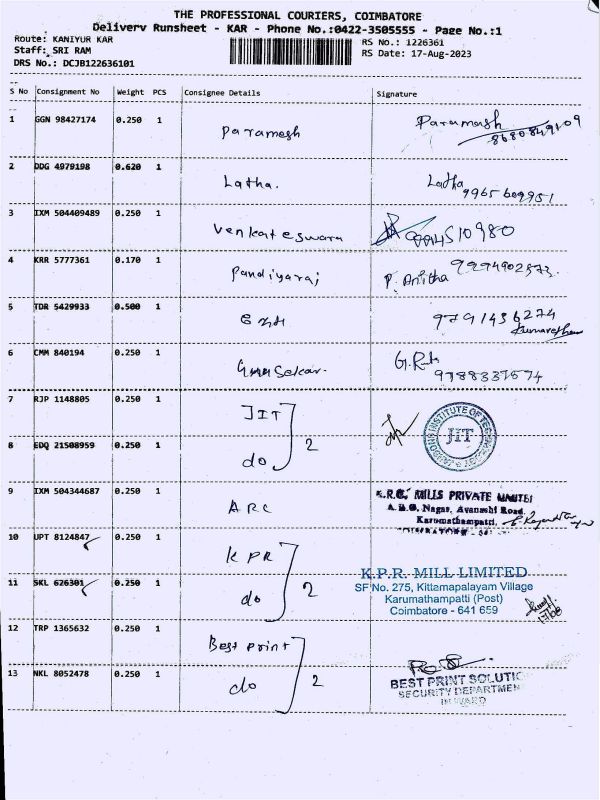 THE PROFESSIONAL COURIERS, COIMBATORE
Delivery Runsheet - KAR - Phone No.:0422-3505555 - Page No.:1
Route: KANIYUR KAR
RS No.: 1226361
Staff: SRI RAM
RS Date: 17-Aug-2023
DRS No.: DCJB122636101
S No Consignment No Weight PCS Consignee Details Signature
1 GGN 98427174 0.250 1 Paramesh Paramash
8680849109
2 DDG 4979198 0.620 1 Latha. Latha
9965609951
3 IXM 504409489 0.250 1 Venkateswara
4 KRR 5777361 0.170 1 Pandiyaraj P. Anitha
5 TDR 5429933 0.500 1 9791436274
6 CMM 840194 0.250 1 Gunasekar.
7 RJP 1148805 0.250 1 JIT 2 JIT
8 EDQ 21508959 0.250 1 do
9 IXM 504344687 0.250 1 ARC
MILLS PRIVATE LIMITED
Nagar, Avanashi Road,
Karumathampatti,
10 UPT 8124847 0.250 1 KPR 2
11 SKL 626301 0.250 1 do
K.P.R. MILL LIMITED
SF No. 275, Kittampalayam Village
Karumathampatti (Post)
Coimbatore - 641 659
17/08
12 TRP 1365632 0.250 1 Best print 2
13 NKL 8052478 0.250 1 do
BEST PRINT SOLUTIO
SECURITY DEPARTMEN
INWARD